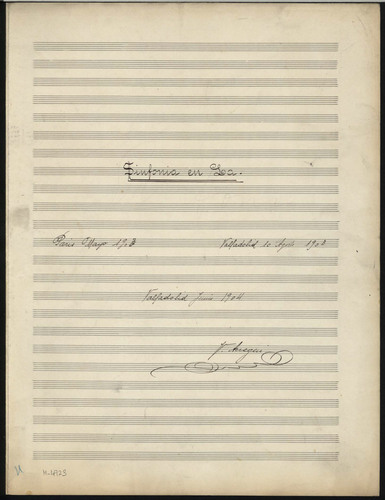 Sinfonia en La.
Paris Mayo 1903 Valladolid 10 Agto 1903
Valladolid Junio 1904
V. Arregui
M-4923